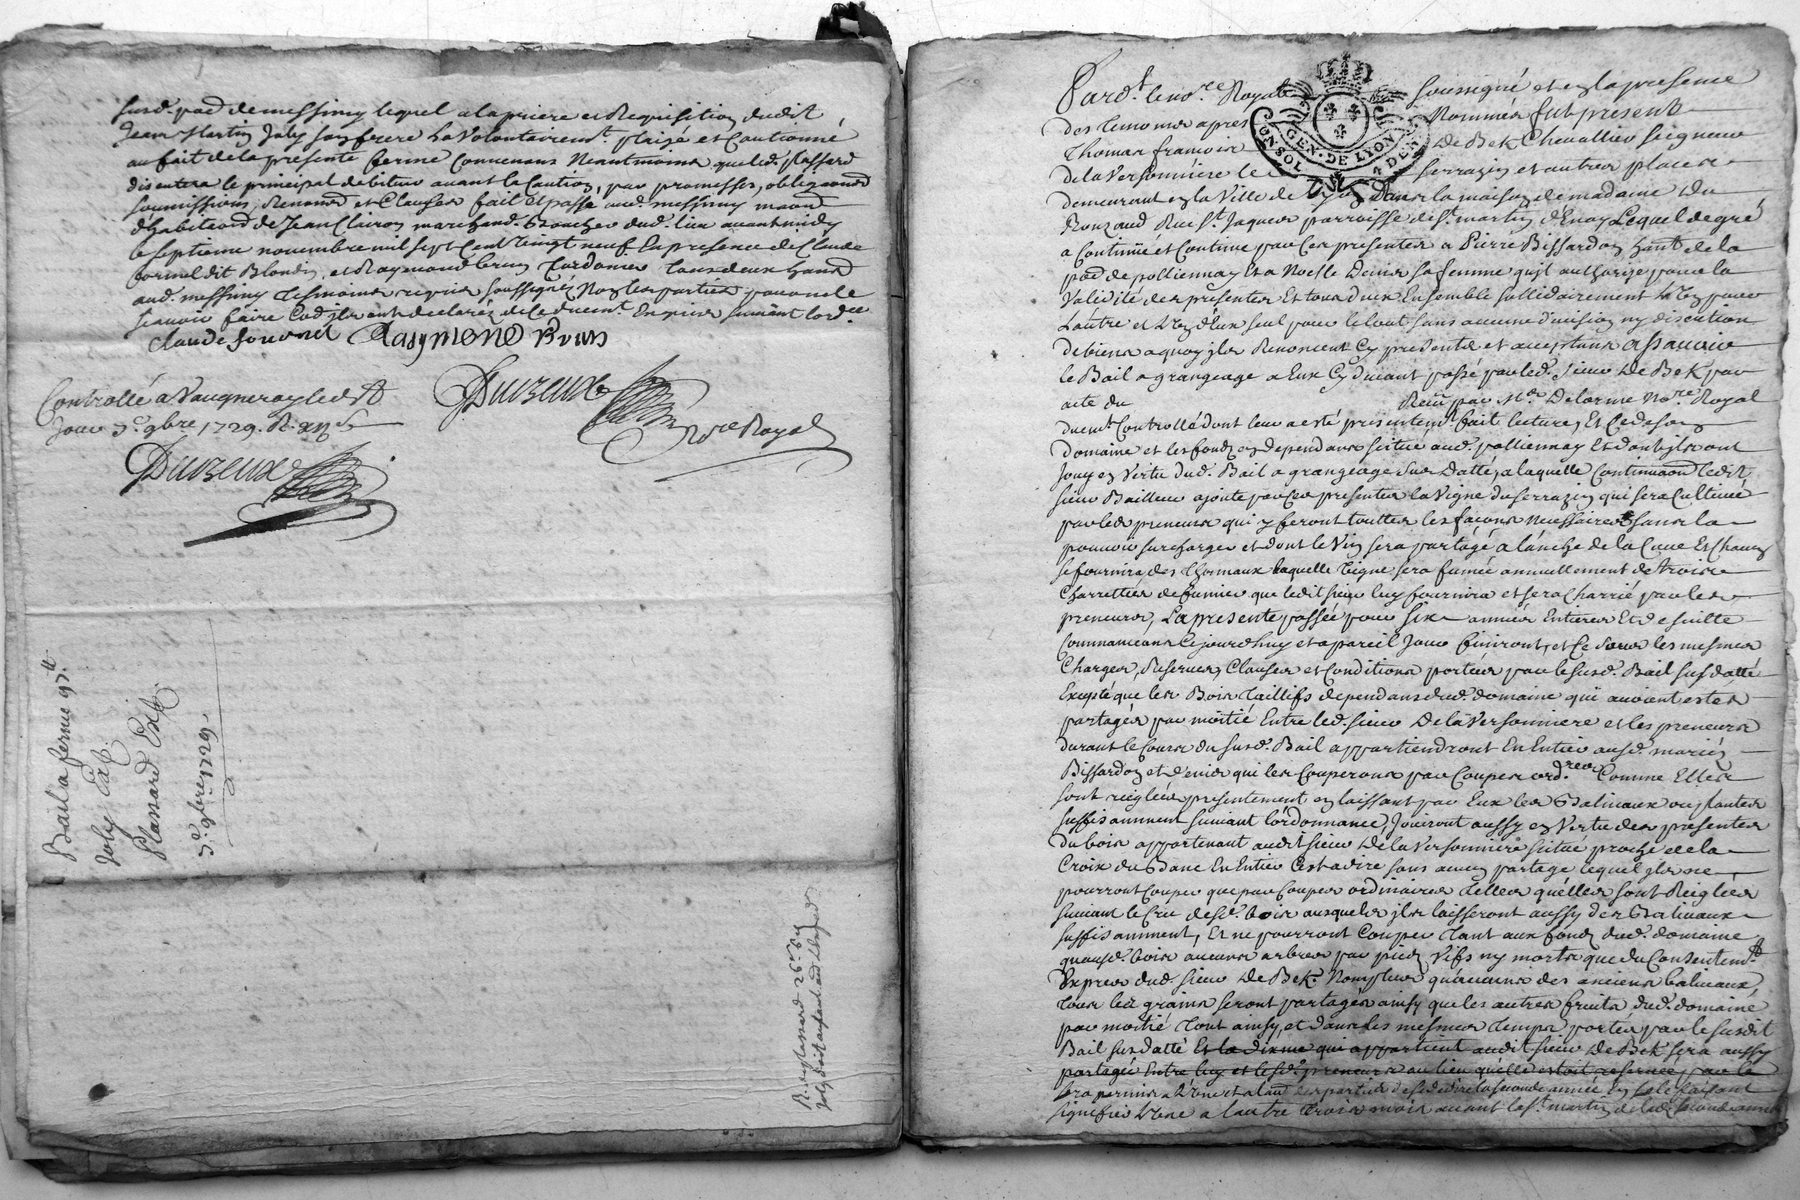 susd. par. de messimy lequel a la priere et Requisition dudit
Jean Martin Joly son frere La volontairemt. plaigé et Cautionné
au fait de la presente ferme Convenans Neantmoins que led. plassard
discutera le principal debiteur avant la Caution, par promesses, obligaons
soumissions, Renonon et Clauses fait et passé aud. messimy maon
d'habitaon de Jean Clairon marchand. dud. lieu avant midy
le septieme novembre mil sept Cent vingt neuf En presence de Claude
fornel dit Blondin, et Raymond brun Cordonier tous deux habt
aud. messimy tesmoins requis soussignés Non les parties pour ne le
sçavoir faire Comme jls ont declaré de ce duemt. Enquis suivant lordce
Claude fournel Raymond Brun
Controllé a Vaugneray led.
Jour 7e. 9bre. 1729. R. xii s
Duvzeux
Nore Royal
Duvzeux
Bail a ferme 97 tt
Joly
Plassard
7e. 9bre 1729
Pardt. le nore. Royal soussigné et en la presence
des temoins apres Nommés fut present
Thomas francois De Bek Chevallier seigneur
de la Versonniere le serrazin et autres places
demeurant en la Ville de Lyon Dans la maison de madame Du
Ronzaud Rue St. Jaques parroisse de St. martin d'Enay Lequel de gré
a Continüé et Continue par Ces presentes a Pierre Bissardon habt. de la
par. de pollienay Et a Noelle Denis sa femme qu'jl authorize pour la
Validité des presentes Et tous deux Ensemble sollidairement L'un pour
L'autre et L'un d'Eux seul pour le tout sans aucune division ny discution
de biens a quoy jls Renoncent Cy presents et acceptans assavoir
le Bail a grangeage a Eux Cy devant passé par led. sieur De Bek par
acte du Receu par Me. Delorme Nore. Royal
duemt. Controllé dont leur a esté presentemt. fait lecture, Et Ce de son
Domaine et les fonds en dependans situé aud. pollienay Et dont jls ont
Jouy en Vertu dud. Bail a grangeage sus datté, a laquelle Continuaon ledit
sieur Bailleur ajoute par Ces presentes la Vigne du serrazin qui sera Cultivée
par les preneurs qui y feront touttes les façons necessaires sans la
pouvoir surcharger et dont le Vin sera partagé a l'anche de la Cuve Et Chacun
se fournira des Thonnaux laquelle Vigne sera fumée annuellement de trois
Charrettées de fumier que ledit sieur luy fournira et sera Charrié par les
preneurs, La presente passée pour six années Entieres Et de suitte
Commancans Cejourdhuy et a pareil Jour finiront, et Ce sous les mesmes
Charges, Reserves, Clauses et Conditions portées par le susd. Bail susdatté
Excepté que les Bois taillifs dependans dud. domaine qui avoient estés
partagés par moitié Entre led. sieur De la Versonniere et les preneurs
durant le Cours du susd. Bail appartiendront En Entier ausd. mariés
Bissardon et Denis qui les Couperons par Coupes ordres. Comme Elles
sont regleés presentement en laissant par Eux les Balivaux
suffisamment suivant l'ordonnance, Jouiront aussy en Vertu des presentes
du bois appartenant audit sieur De la Versonniere situé proche de la
Croix du Banc En Entier C'est a dire sans aucun partage lequel jls ne
pourront Couper que par Coupes ordinaires telles qu'elles sont Reigleés
suivant le Cru desd. bois ausquels jls laisseront aussy des Balivaux
suffisamment, Et ne pourront Couper tant aux fonds dud. domaine
qu'ausd. bois aucuns arbres par pied Vifs ny morts que du Consentemt.
Expres dud. sieur De Bek. Non plus qu'aucuns des anciens balivaux,
tous les grains seront partagés ainsy que les autres fruits dud. domaine
par moitié tout ainsy, et dans les mesmes temps portés par le susdit
Bail susdatté Et la dixme qui appartient audit sieur De Bek sera aussy
partagée Entre luy et lesd. preneurs au lieu qu'elle estoit reservée par le
sera permis a L'une et a l'autre des parties de se dedire la seconde année En se le faisant
signifier L'une a l'autre trois mois avant la St. martin de lad. seconde année
GEN. DE LYON